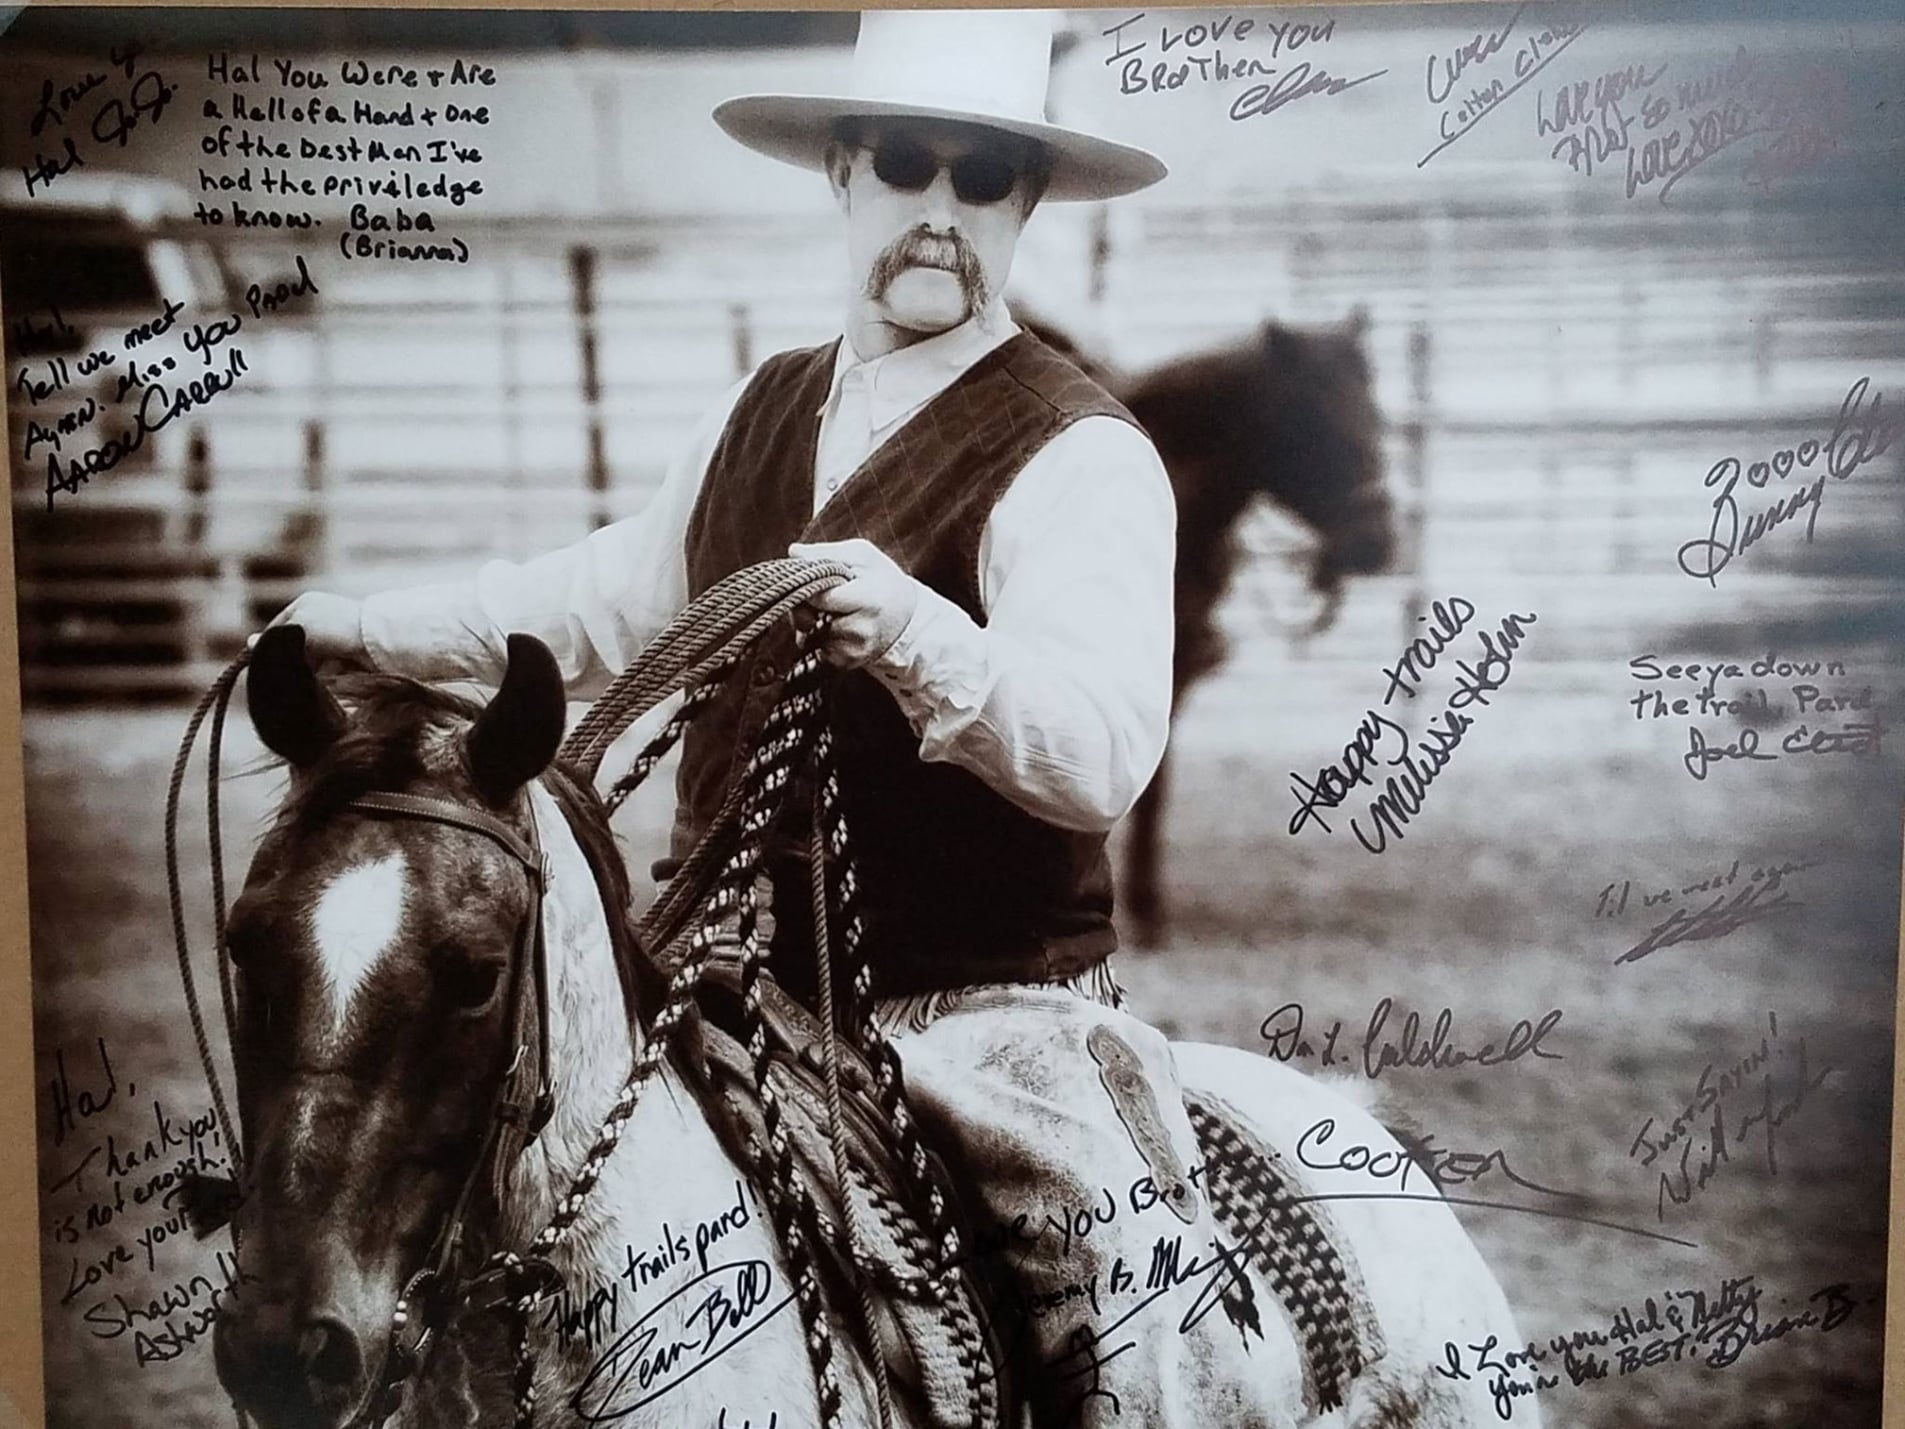 Love y
Hal JoJo.
Hal You Were + Are
a Hellofa Hand + One
of the best Men I've
had the priviledge
to know. Baba
(Brianna)
I Love you
Brother
Colton
Love you
that so much
Love xoxo
Hal,
Tell we meet
Again. Miss you Pard
AARON CARROLL
Bunny
Happy trails
Melissa Holm
See ya down
the trail, Pard
Joel
Til we meet again
Caldwell
Just Sayin'!
COOTER
Hal,
Thank you
is not enough.
Love your
Shawn
Ashworth
Happy trails pard!
Dean Bell
you Brot
Jeremy B.
I Love you Hal & Netty
You're the BEST. Brian B